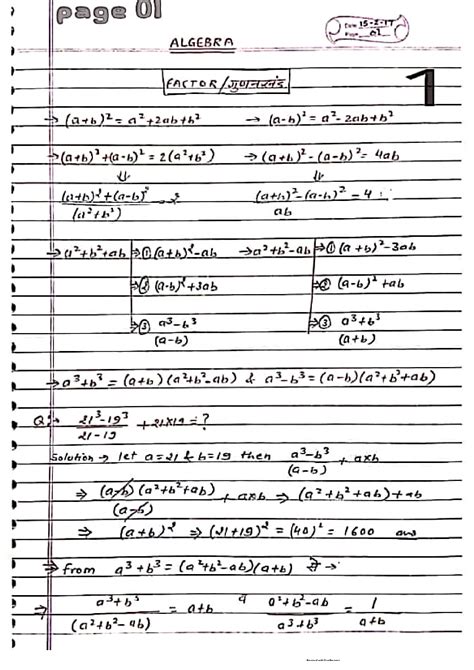 page 01
Date 15-2-17
Page 01
ALGEBRA
FACTOR/गुणनखंड
1
→ (a+b)² = a²+2ab+b² → (a-b)² = a²-2ab+b²
→ (a+b)²+(a-b)² = 2(a²+b²) → (a+b)²-(a-b)² = 4ab
⇓ ⇓
(a+b)²+(a-b)² / (a²+b²) (a+b)²-(a-b)² / ab = 4
→ a²+b²+ab ⇒ ① (a+b)²-ab → a²+b²-ab ⇒ ① (a+b)²-3ab
⇒ ② (a-b)²+3ab ⇒ ② (a-b)²+ab
⇒ ③ a³-b³ / (a-b) ⇒ ③ a³+b³ / (a+b)
→ a³+b³ = (a+b)(a²+b²-ab) & a³-b³ = (a-b)(a²+b²+ab)
Q:→ 21³-19³ / 21-19 + 21×19 = ?
Solution → let a=21 & b=19 then a³-b³ / (a-b) + a×b
⇒ (a-b)(a²+b²+ab) / (a-b) + a×b ⇒ (a²+b²+ab)+ab
⇒ (a+b)² ⇒ (21+19)² = (40)² = 1600 ans
⇒ from a³+b³ = (a²+b²-ab)(a+b) से →
⇒ a³+b³ / (a²+b²-ab) = a+b व a²+b²-ab / a³+b³ = 1 / a+b